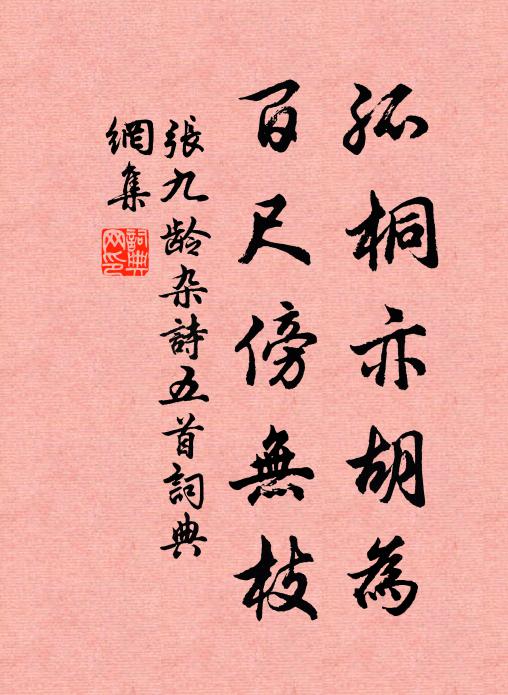 孤桐亦胡為
百尺傍無枝
張九齡杂詩五首詞典
網集
詞典
网印